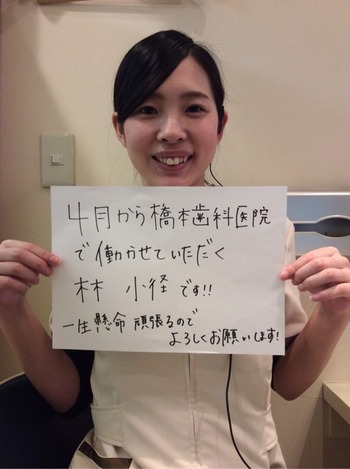 4月から橋本歯科医院
で働かせていただく
林 小径です!!
一生懸命 頑張るので
よろしくお願いします!